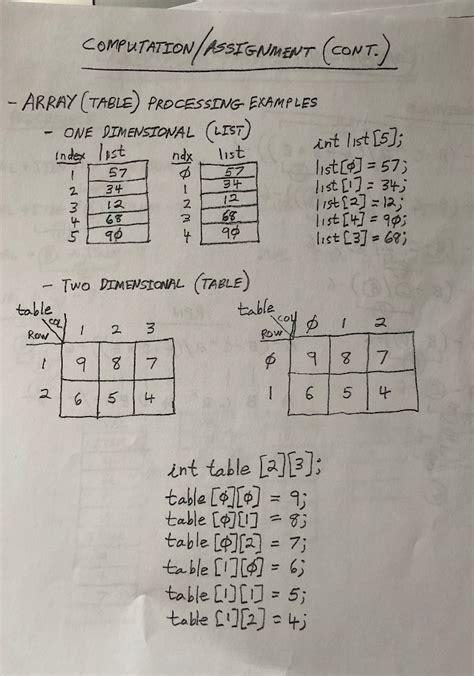 COMPUTATION/ASSIGNMENT (CONT.)
- ARRAY (TABLE) PROCESSING EXAMPLES
- ONE DIMENSIONAL (LIST)
index list
1 57
2 34
3 12
4 68
5 9φ
ndx list
φ 57
1 34
2 12
3 68
4 9φ
int list[5];
list[φ] = 57;
list[1] = 34;
list[2] = 12;
list[4] = 9φ;
list[3] = 68;
- TWO DIMENSIONAL (TABLE)
table
col
Row 1 2 3
1 9 8 7
2 6 5 4
table
col
Row φ 1 2
φ 9 8 7
1 6 5 4
int table [2][3];
table [φ][φ] = 9;
table [φ][1] = 8;
table [φ][2] = 7;
table [1][φ] = 6;
table [1][1] = 5;
table [1][2] = 4;